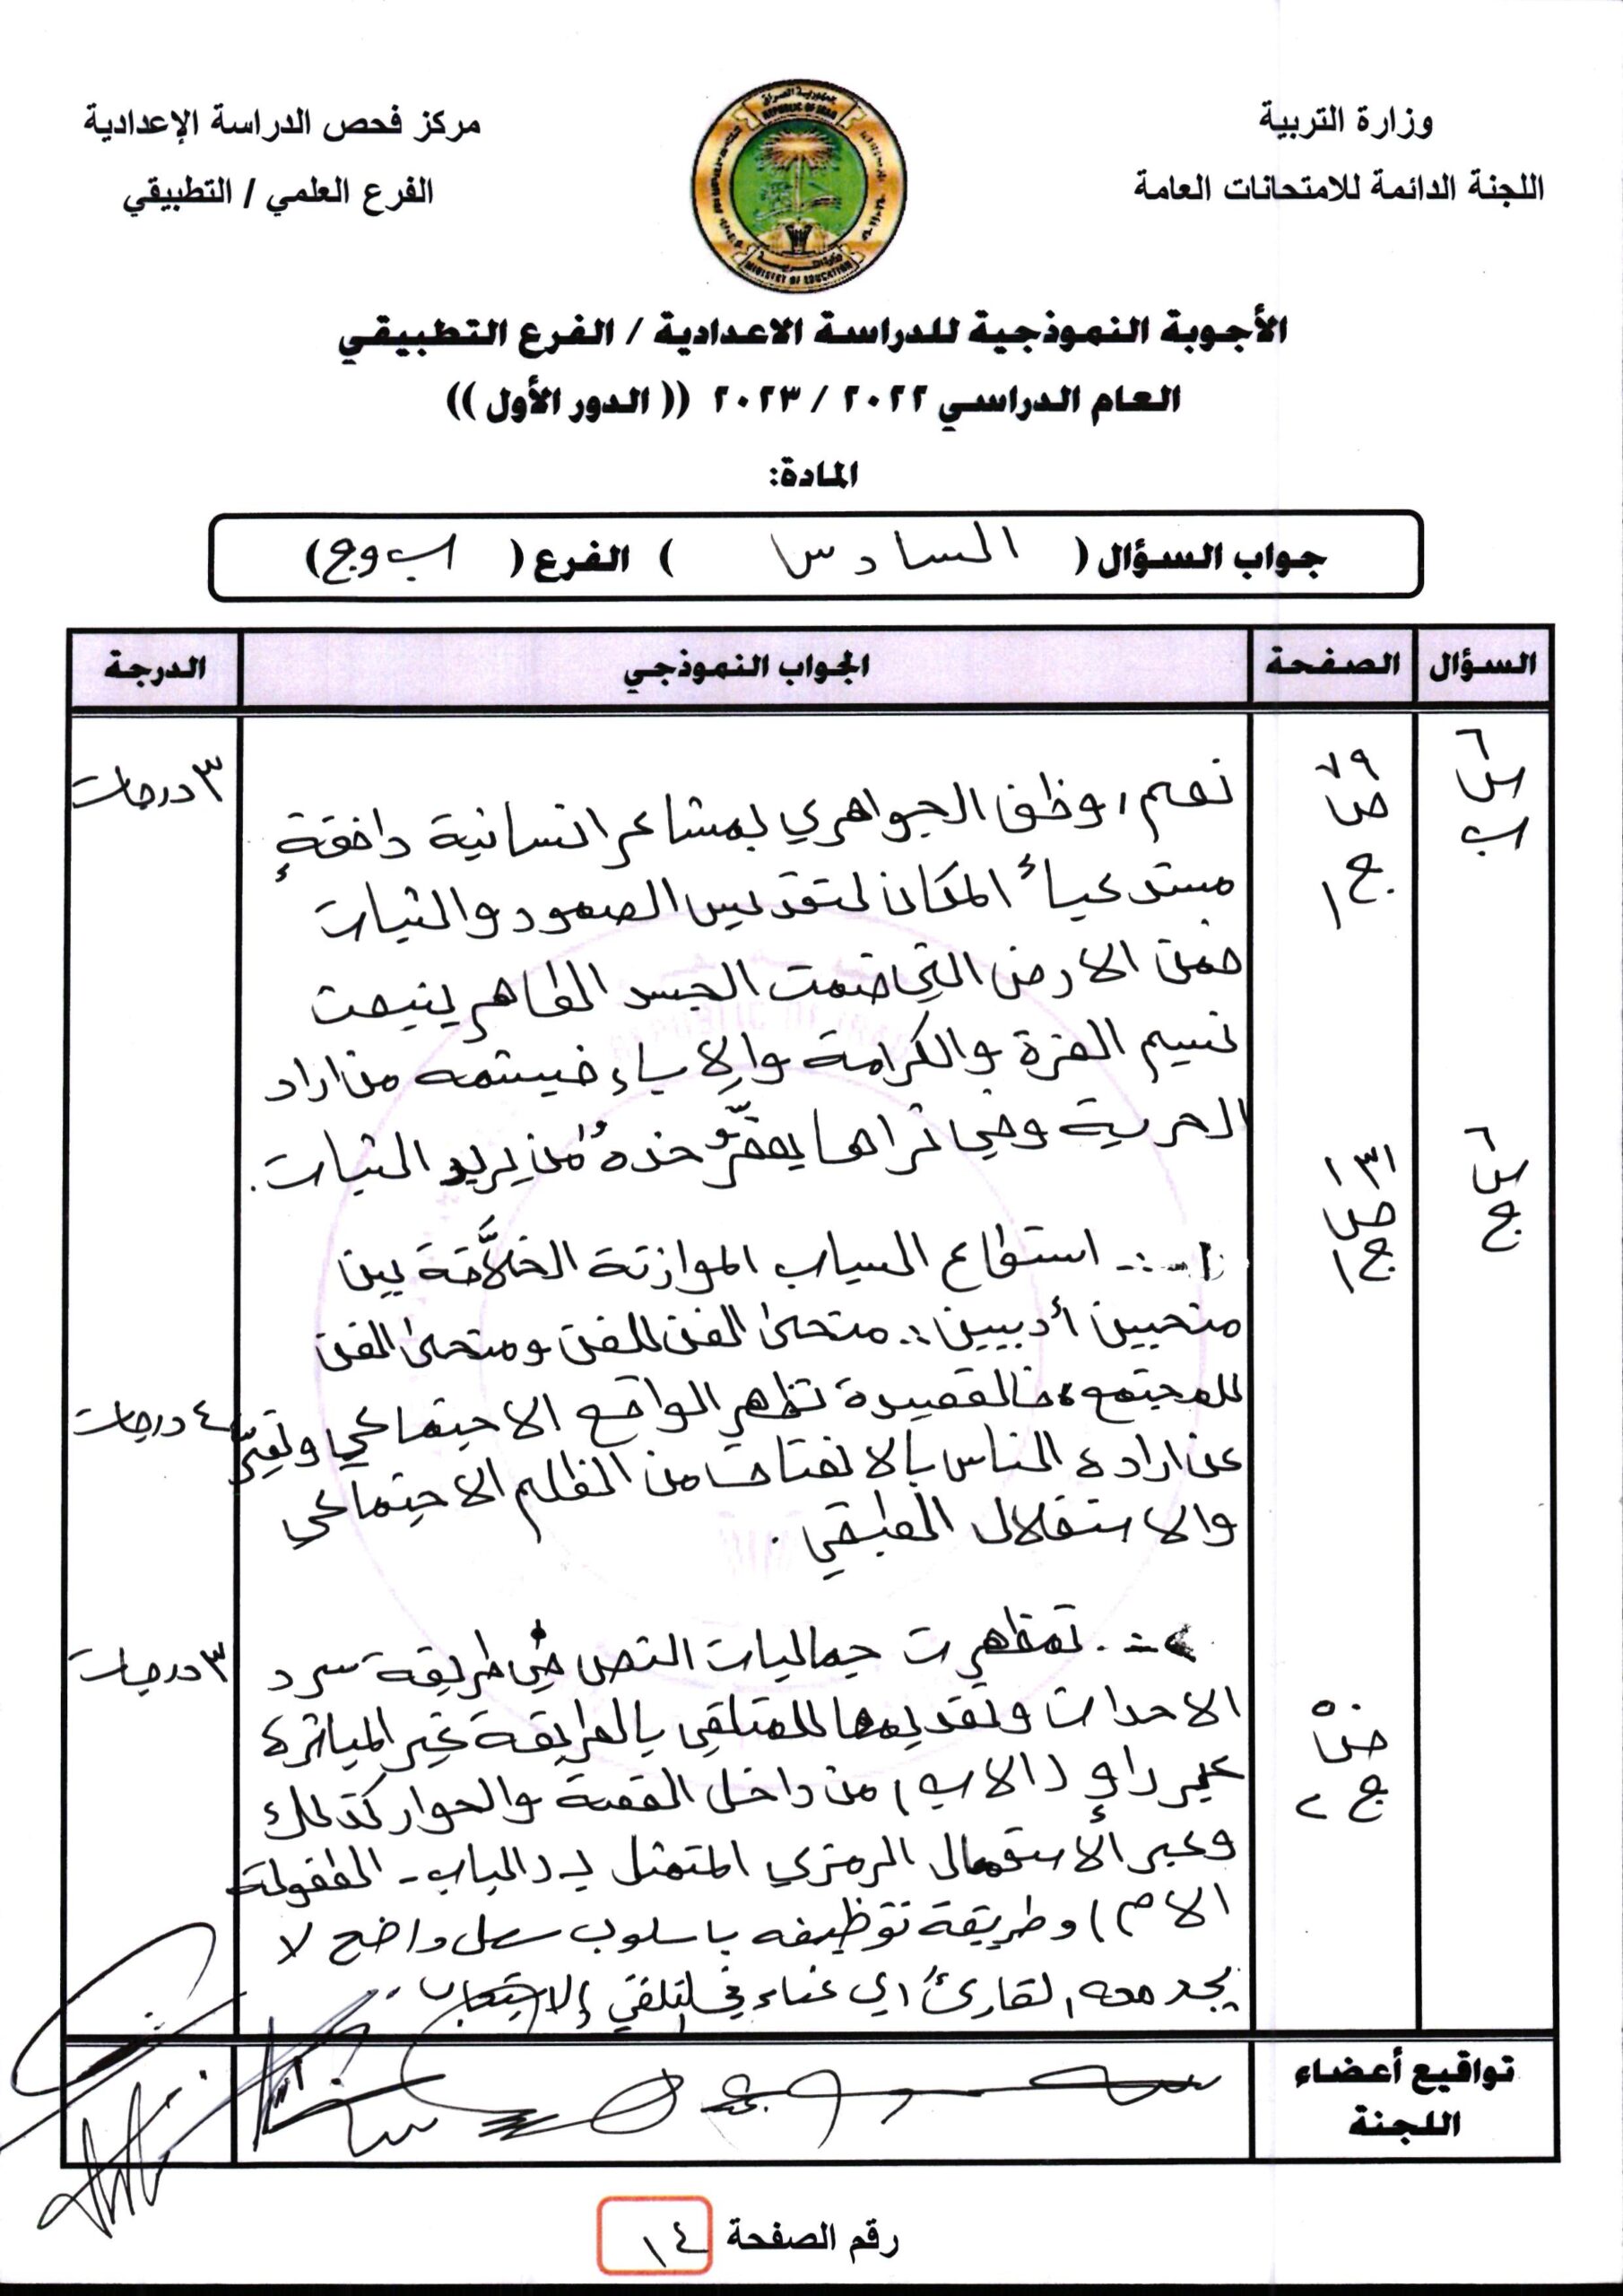 وزارة التربية
اللجنة الدائمة للامتحانات العامة
مركز فحص الدراسة الإعدادية
الفرع العلمي / التطبيقي
REPUBLIC OF IRAQ
MINISTRY OF EDUCATION
الأجوبة النموذجية للدراسة الاعدادية / الفرع التطبيقي
العام الدراسي ٢٠٢٢ / ٢٠٢٣ (( الدور الأول ))
المادة:
جواب السؤال ( السادس ) الفرع ( ب و ج )
السؤال الصفحة الجواب النموذجي الدرجة
س٦
ب
٧٩
ص
ج١
نعم، وظف الجواهري بمشاعر انسانية دافقةٍ
مستدعياً المكان لتقديس الصمود والثبات
فمن الارض التي ضمت الجسد الطاهر ينبعث
نسيم العزة والكرامة والإباء فيشمه من اراد
الحرية وفي ثراها يعفّر خده من يريد الثبات.
٣ درجات
س٦
ج
١٣١
ص
ج١
١-:- استطاع السياب الموازنة الخلّاقة بين
منحيين أدبيين:. منحى الفن للفن ومنحى الفن
للمجتمع، فالقصيدة تظهر الواقع الاجتماعي وتعبّر
عن ارادة الناس بالانعتاق من الظلم الاجتماعي
والاستغلال الطبقي.
٤ درجات
٢-:- تمظهرت جماليات النص في طريقة سرد
الاحداث وتقديمها للمتلقي بالطريقة غير المباشرة
عبر راوٍ (الاب) من داخل القصة والحوار كذلك
وعبر الأستعمال الرمزي المتمثل بـ (الباب - الطفولة
الام) وطريقة توظيفه باسلوب سهل واضح لا
يجد معه القارئ اي عناء في التلقي والاستيعاب.
ص٥
ج٢
٣ درجات
تواقيع أعضاء
اللجنة
رقم الصفحة ١٤